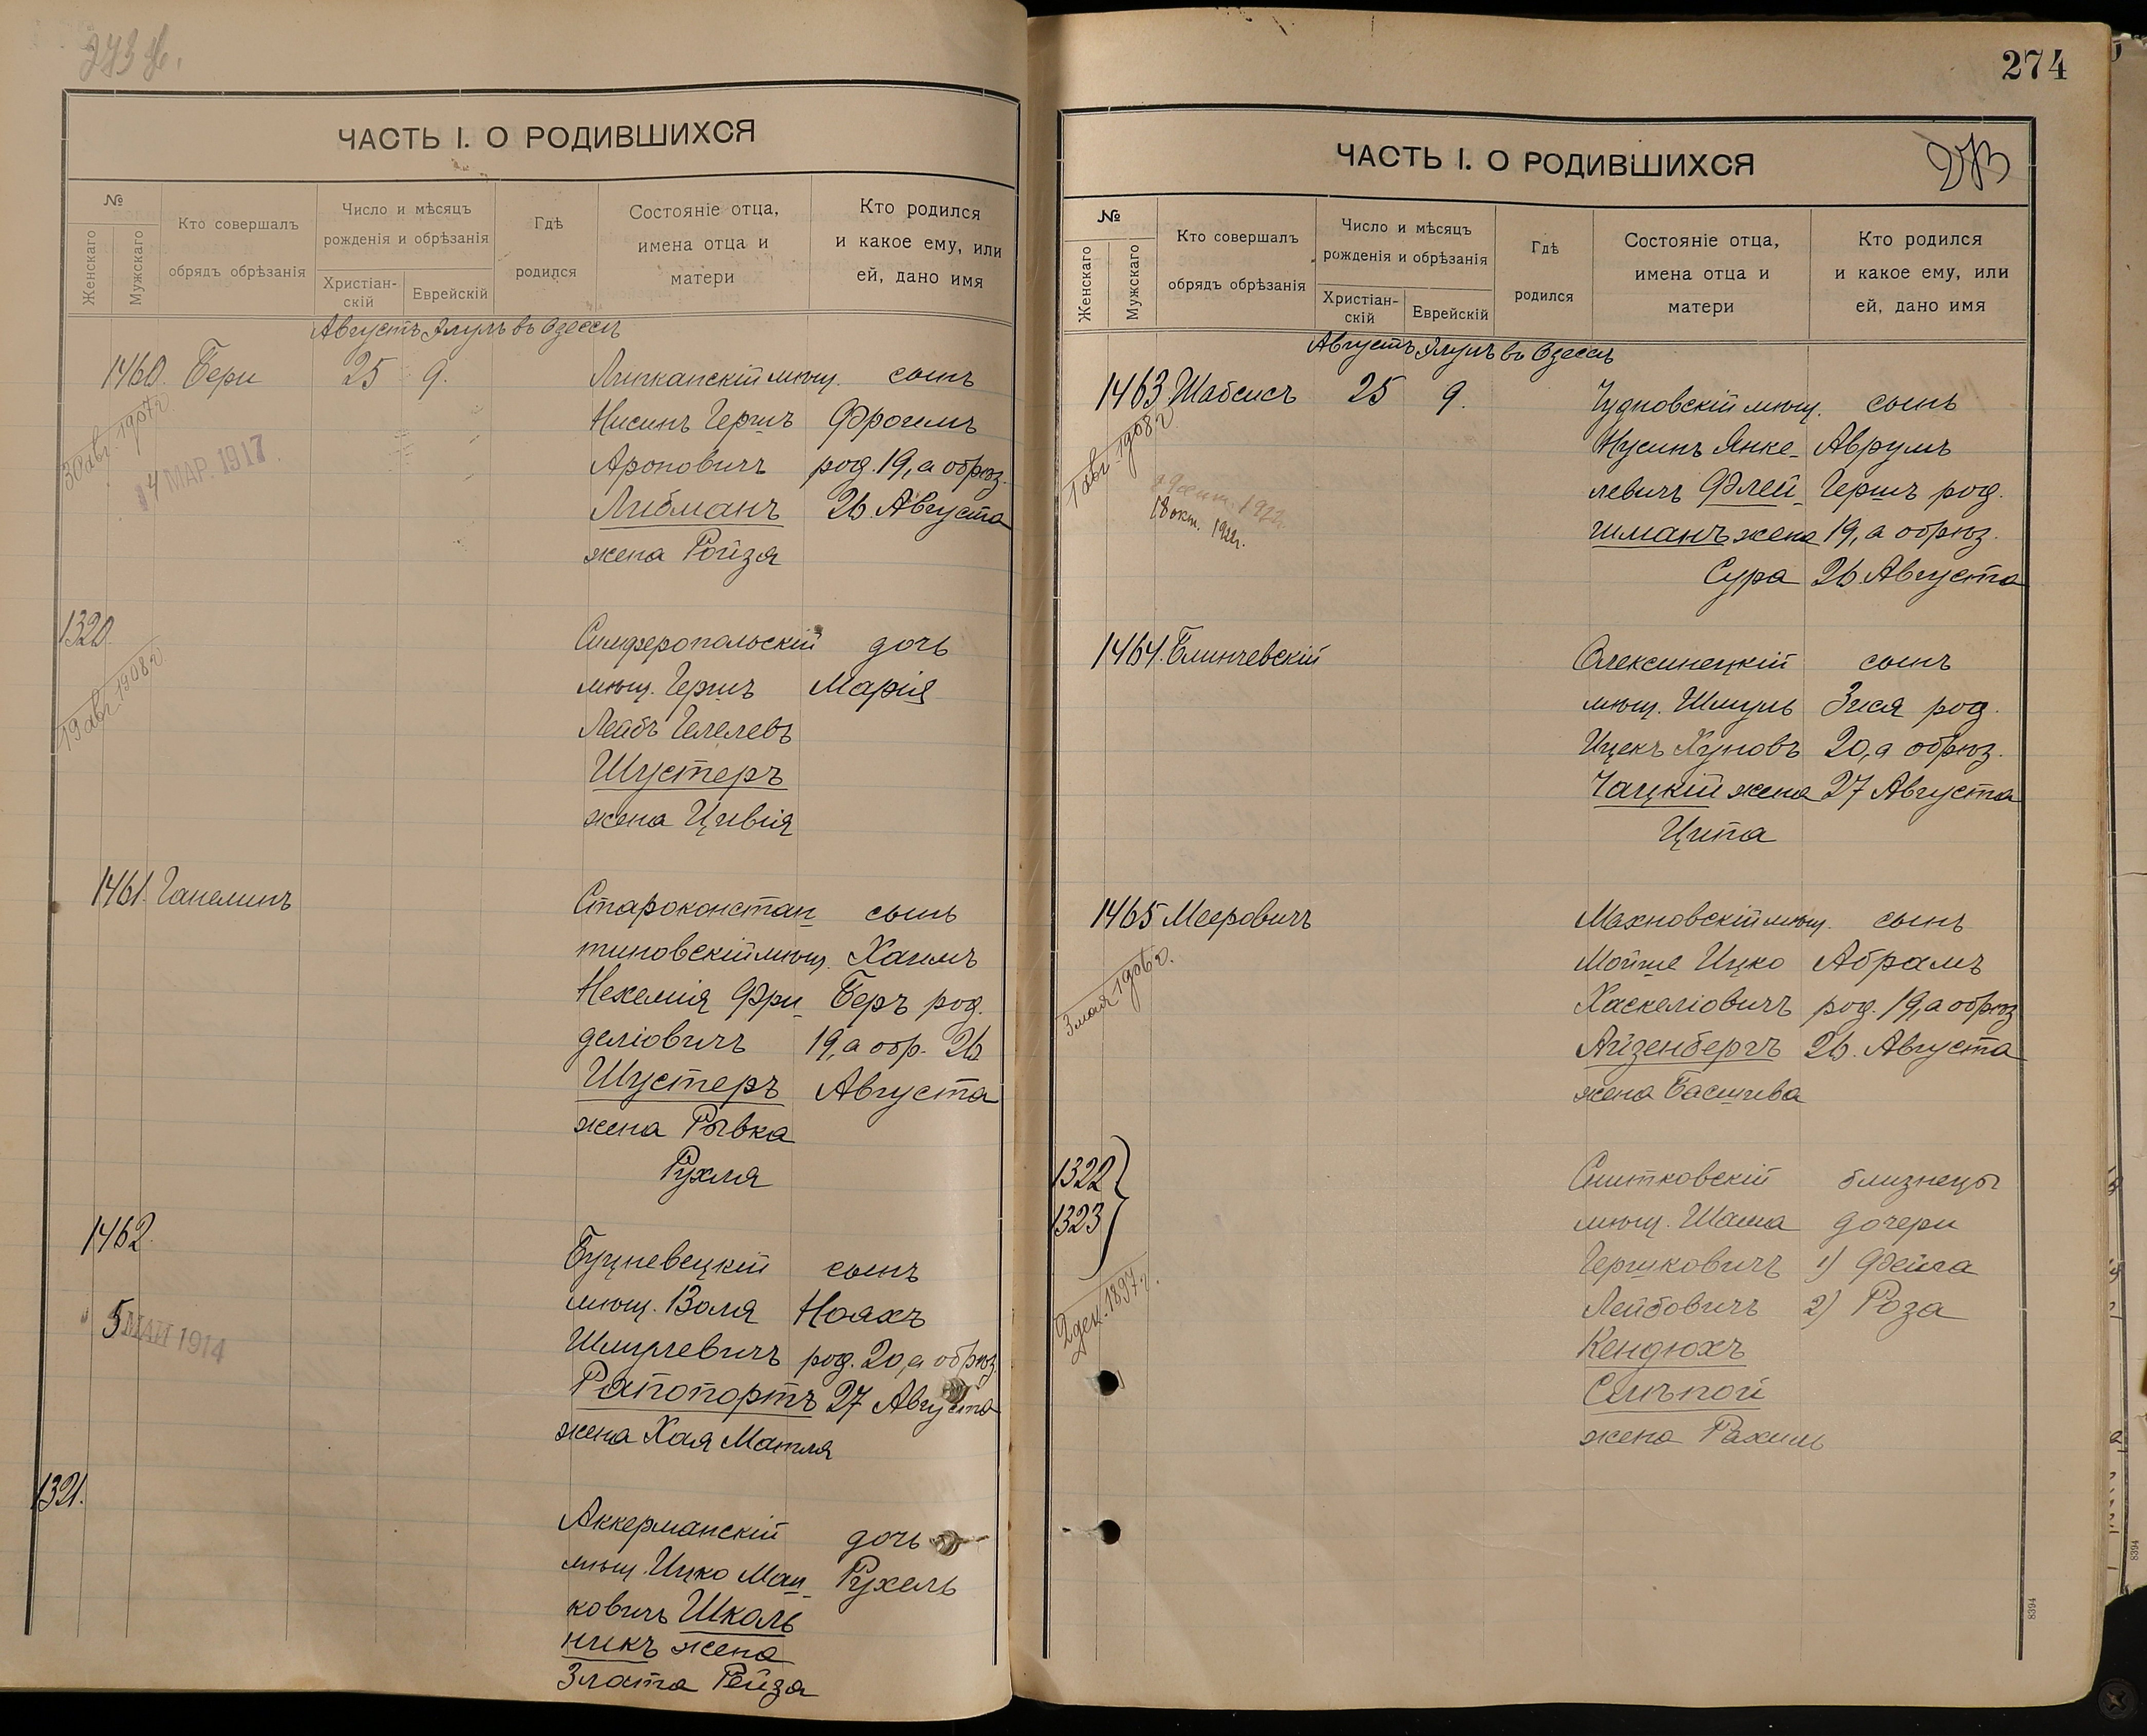 ЧАСТЬ I. О РОДИВШИХСЯ
№
Женскаго
Мужскаго
Кто совершалъ
обрядъ обрѣзанія
Число и мѣсяцъ
рожденія и обрѣзанія
Христіан-
скій
Еврейскій
Гдѣ
родился
Состояніе отца,
имена отца и
матери
Кто родился
и какое ему, или
ей, дано имя
Августъ Элулъ въ Одессѣ
1460. Бери 25 9. Липканскій мѣщ. сынъ
Нисинъ Гершъ Фроимъ
Ароновичъ род. 19, а обрѣз.
Либманъ 26. Августа
жена Ройзя
30 авг. 1907 г.
14 МАР. 1917
1320. Симферопольскій дочь
мѣщ. Гершъ Марія
Лейбъ
Шустеръ
жена Цивія
19 авг. 1908 г.
1461. Ганелинъ Староконстан
тиновскій мѣщ. Хаимъ сынъ
Нехемія Фри- Беръ род.
деліовичъ 19, а обр. 26
Шустеръ Августа
жена Рывка
Рухля
1462. Буцневецкій сынъ
мѣщ. Воля Ноахъ
Шмулевичъ род. 20, а обрѣз.
Рапопортъ 27 Августа
жена Хая Матля
5 МАЙ 1914
1321. Аккерманскій дочь
мѣщ. Ицко Рухель
ковичъ Школь
никъ жена
Злата Рейза
274
ЧАСТЬ I. О РОДИВШИХСЯ
№
Женскаго
Мужскаго
Кто совершалъ
обрядъ обрѣзанія
Число и мѣсяцъ
рожденія и обрѣзанія
Христіан-
скій
Еврейскій
Гдѣ
родился
Состояніе отца,
имена отца и
матери
Кто родился
и какое ему, или
ей, дано имя
Августъ Элулъ въ Одессѣ
1463. Шабсисъ 25 9. Чудновскій мѣщ. сынъ
Нусинъ Янке- Аврумъ
левичъ Флей- Гершъ род.
шманъ жена 19, а обрѣз.
Сура 26. Августа
1 авг. 1908 г.
18 окт. 1922 г.
1464. Блинчевскій Олексинецкій сынъ
мѣщ. Шмуль Зися род.
Ицекъ Хуновъ 20, а обрѣз.
Чацкій жена 27 Августа
Ципа
1465 Мееровичъ Махновскій мѣщ. сынъ
Мойше Ицко Абрамъ
Хаскеліовичъ род. 19, а обрѣз
Айзенбергъ 26. Августа
жена Басшева
3 мая 1906 г.
1322
1323
Снитковскій близнецы
мѣщ. дочери
Гершковичъ 1) Фейга
Лейбовичъ 2) Роза
Кендюхъ
Слѣпой
жена Рахиль
2 дек. 1897 г.
8394